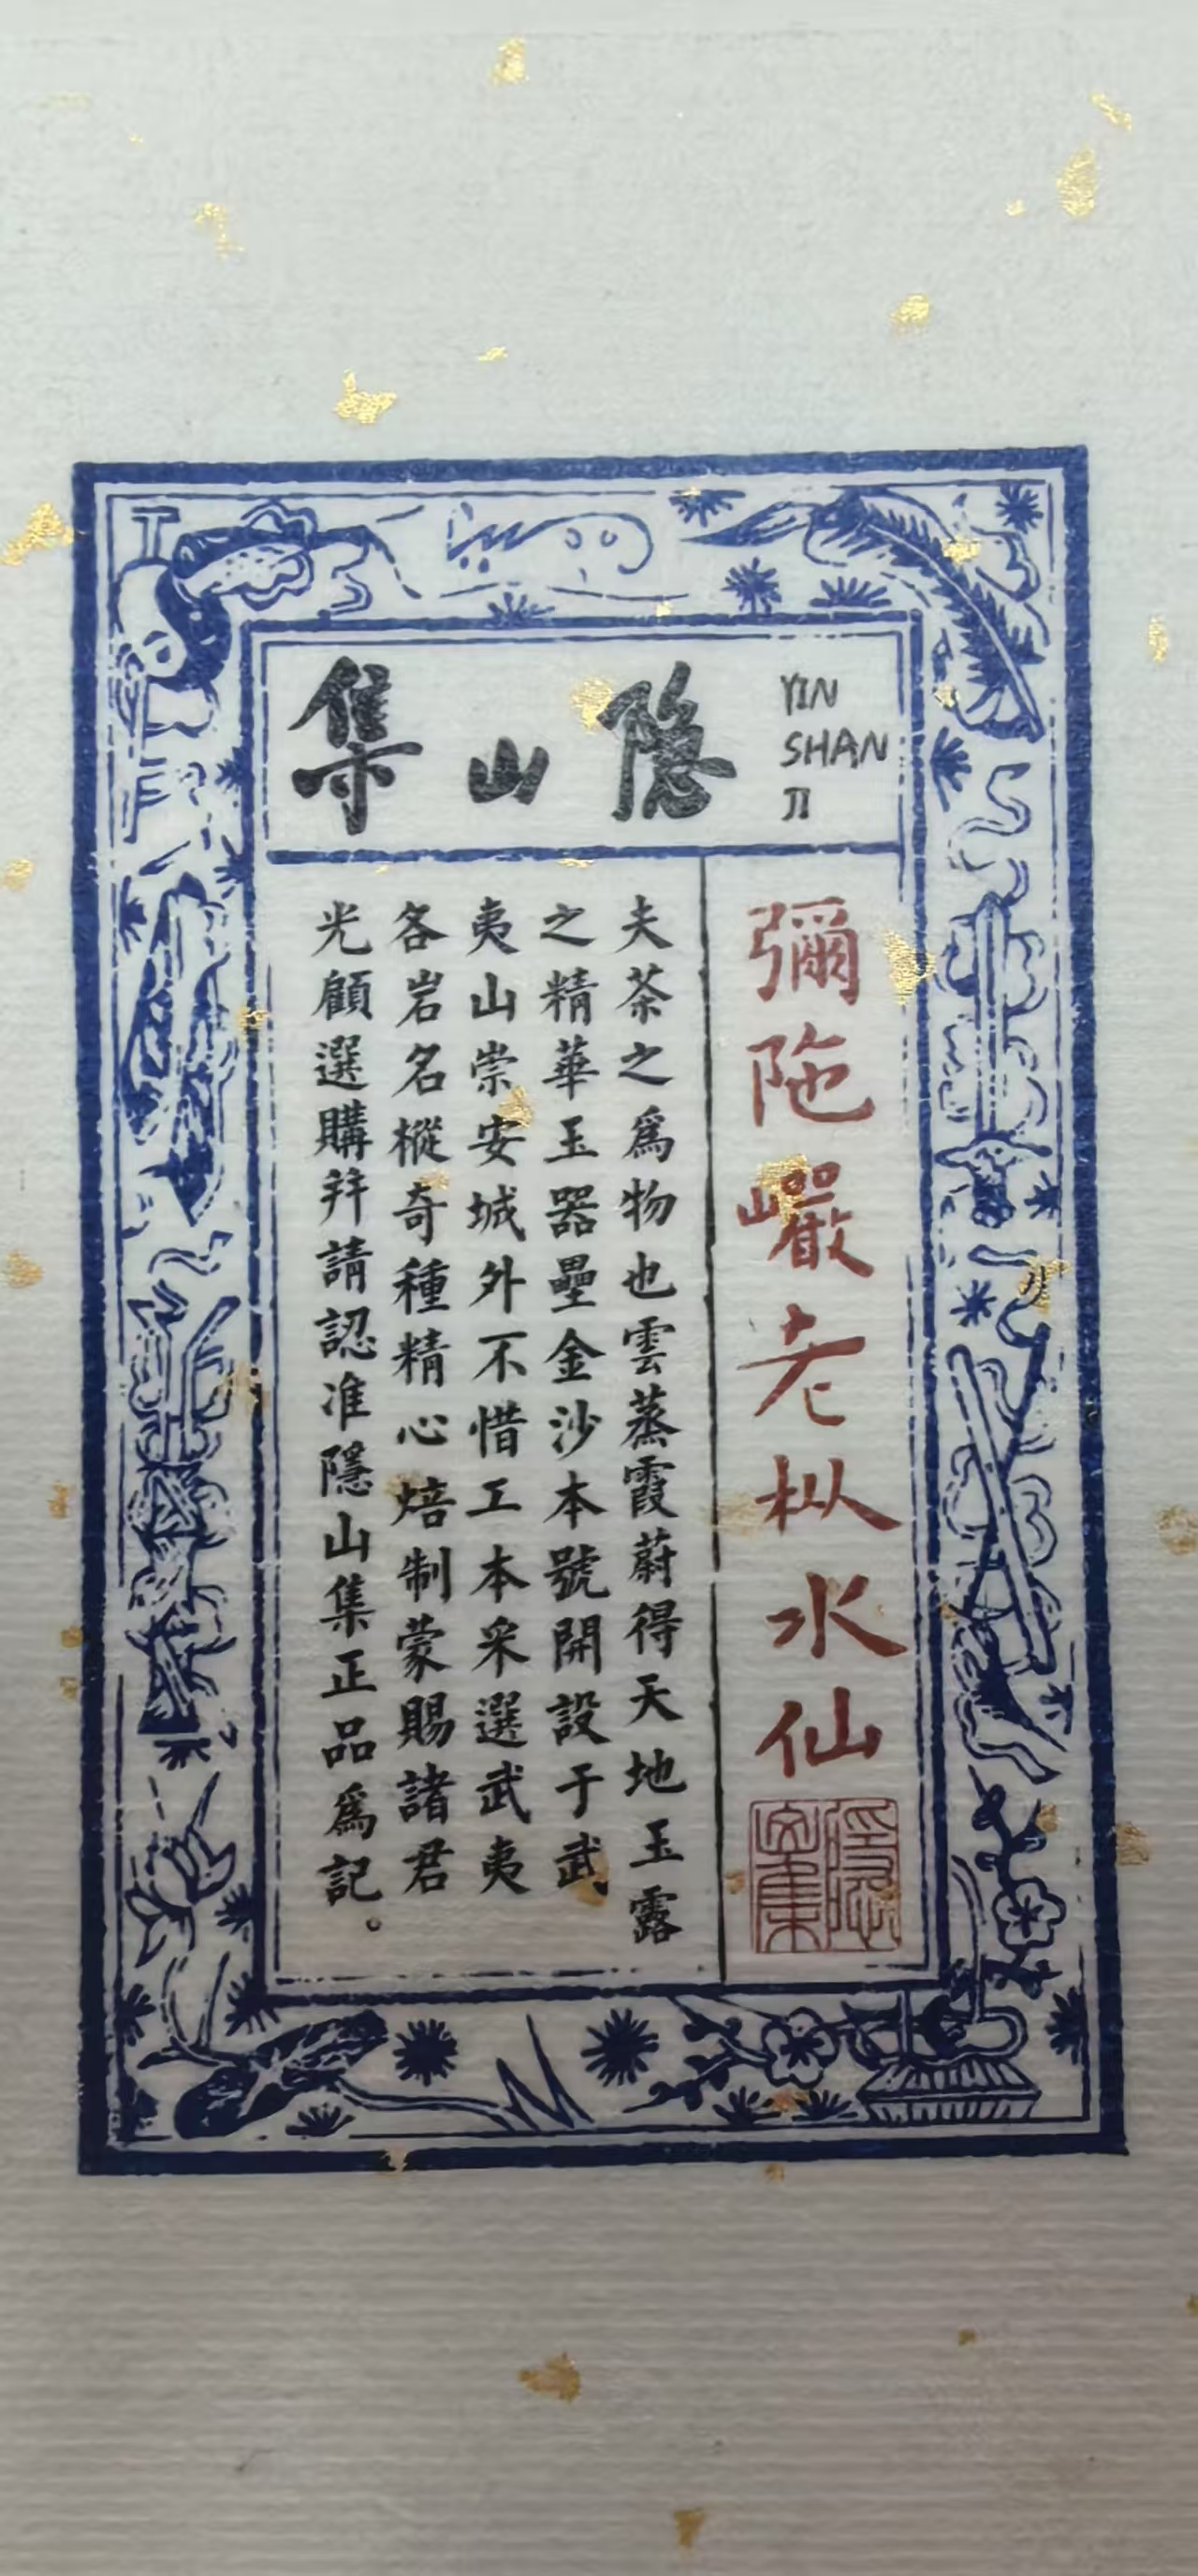 隐山集
YIN
SHAN
JI
彌陁巖老枞水仙
夫茶之爲物也雲蒸霞蔚得天地玉露
之精華玉器壘金沙本號開設于武
夷山崇安城外不惜工本采選武夷
各岩名樅奇種精心焙制蒙賜諸君
光顧選購拜請認准隱山集正品爲記。